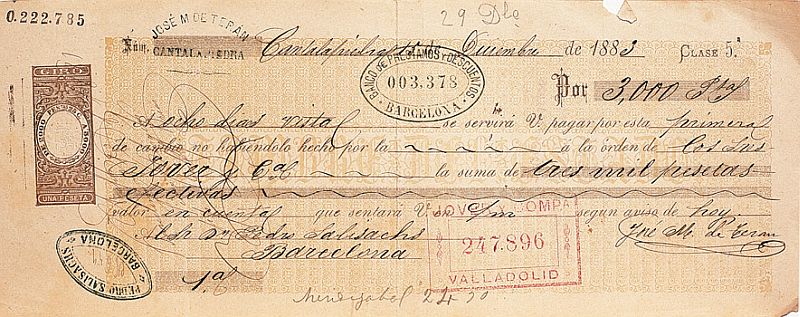 0.222.785
29 Dbe
JOSÉ M DE TERÁN
CANTALAPIEDRA
Núm. Cantalapiedra Diciembre de 1883 CLASE 5ª
BANCO DE PRESTAMOS Y DESCUENTOS
003.378
BARCELONA
Por 3,000 Ptas
GIRO
UNA PESETA
A ocho dias vista se servirá V. pagar por esta primera
de cambio no habiéndolo hecho por la á la órden de Los Sres
Jover y Cª la suma de tres mil pesetas
efectivas
valor en cuenta que sentará V. segun aviso de hoy
JOVER Y COMPA
247.896
VALLADOLID
Al Sr. Dn Pedro Salisachs José M. de Teran
Barcelona
PEDRO SALISACHS
BARCELONA
1ª
24 30